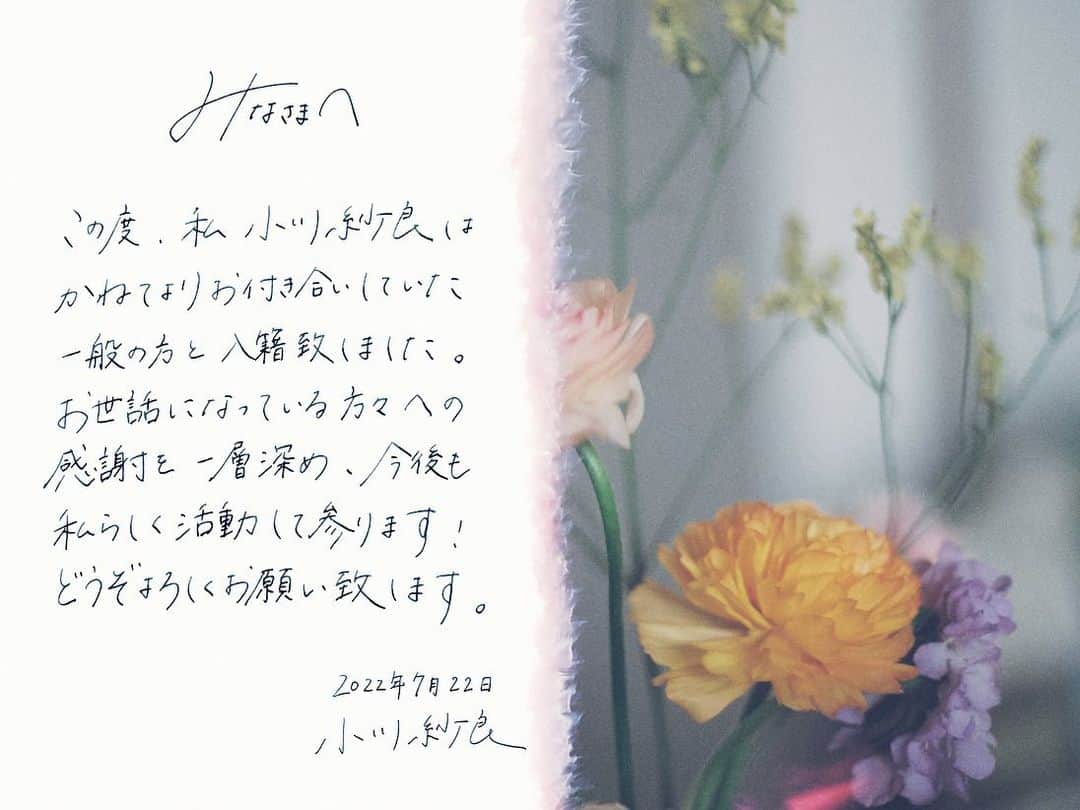 みなさまへ
この度、私 小川紗良は
かねてよりお付き合いしていた
一般の方と入籍致しました。
お世話になっている方々への
感謝を一層深め、今後も
私らしく活動して参ります！
どうぞよろしくお願い致します。
2022年7月22日
小川紗良